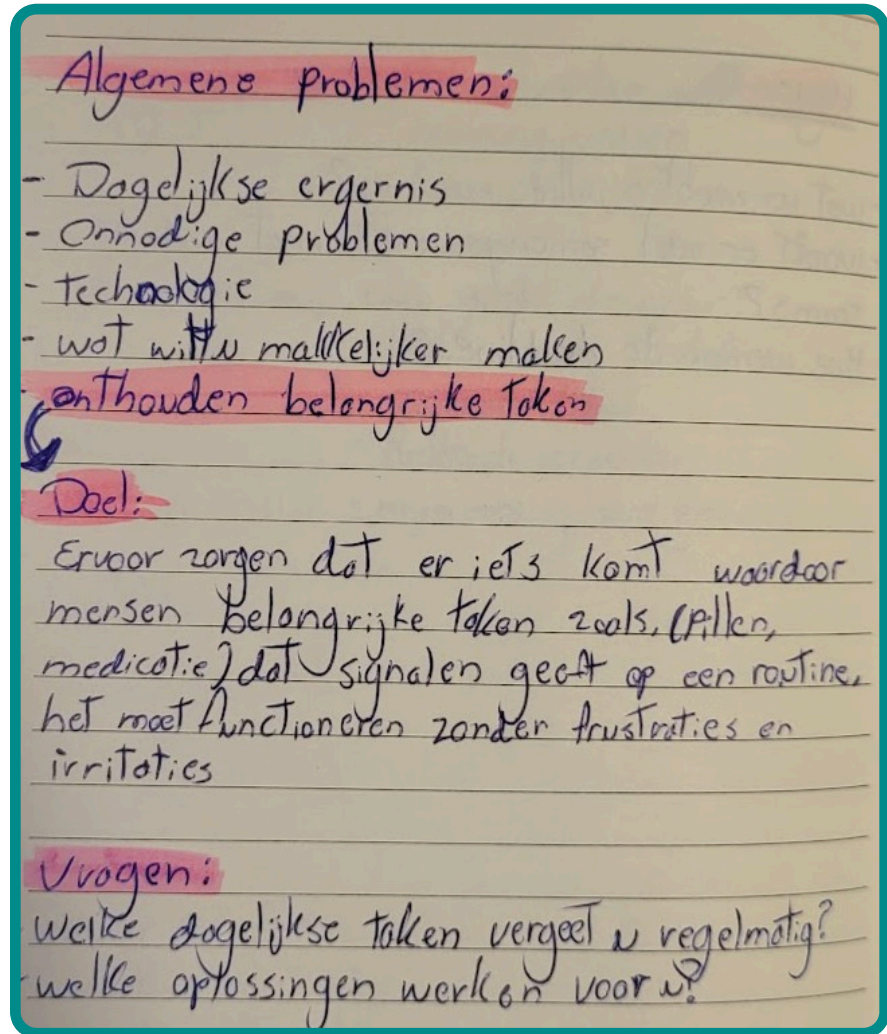 Algemene problemen:
- Dagelijkse ergernis
- Onnodige problemen
- technologie
- wat wilt u makkelijker maken
- onthouden belangrijke taken
Doel:
Ervoor zorgen dat er iets komt waardoor
mensen belangrijke taken zoals, (pillen,
medicatie) dat signalen geeft op een routine.
het moet functioneren zonder frustraties en
irritaties
Vragen:
- Welke dagelijkse taken vergeet u regelmatig?
- welke oplossingen werken voor u?